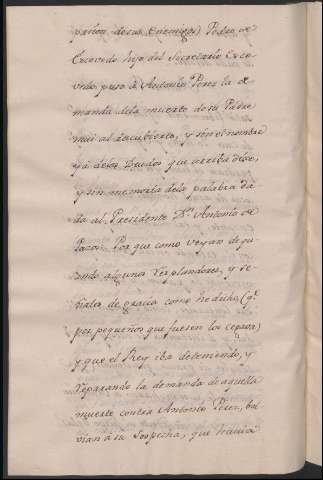 pañon de sus Enemigos) Pedro de
Escovedo hijo del Secretario Esco-
vedo, puso á Antonio Perez la de
manda dela muerte de su Padre
mui al descubierto, y sin el nombre
ya delos Deudos que arriba dixe,
y sin memoria dela palabra da
da al Presidente Dn. Antonio de
Pazos. Por que como veyan de qu
ando algunos resplandores, y se-
ñales de gracia como he dicho, (qe.
por pequeños que fuesen los cegava)
y que el Rey iba deteniendo, y
reparando la demanda de aquella
muerte contra Antonio Perez, bu
vian á su Sospecha, que havia